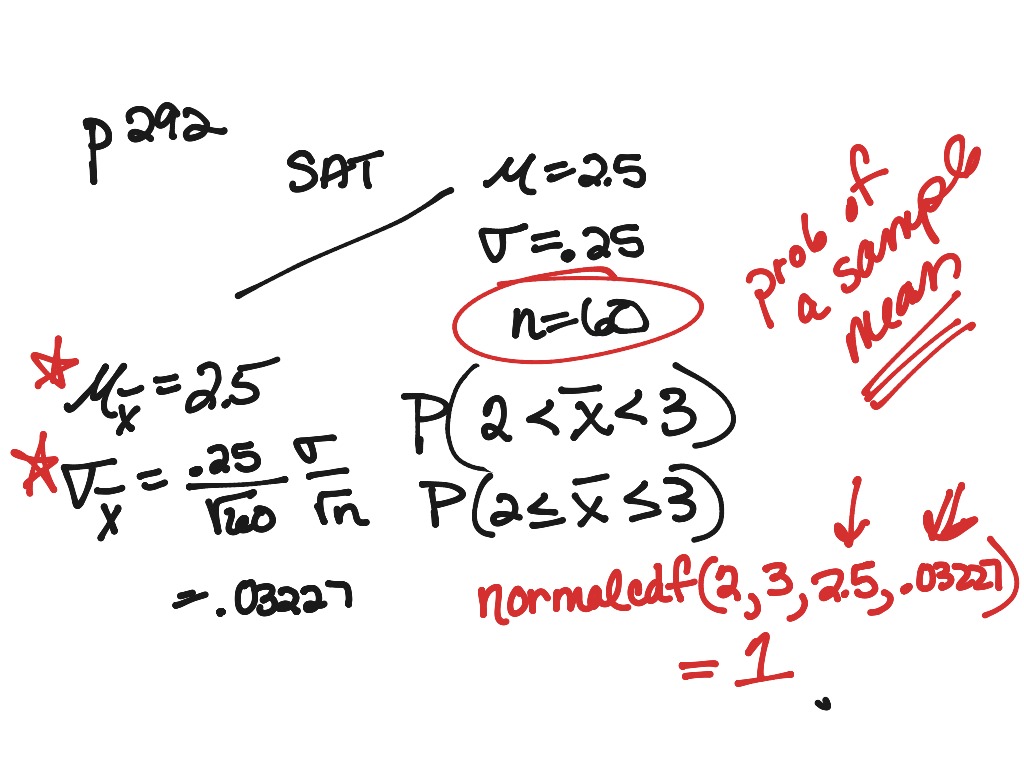 p 292
SAT
μ = 2.5
σ = .25
n = 60
prob of
a sample
mean
μx̅ = 2.5
σx̅ = .25/√60 σ/√n
= .03227
P(2 < x̅ < 3)
P(2 ≤ x̅ ≤ 3)
normalcdf(2, 3, 2.5, .03227)
= 1
.